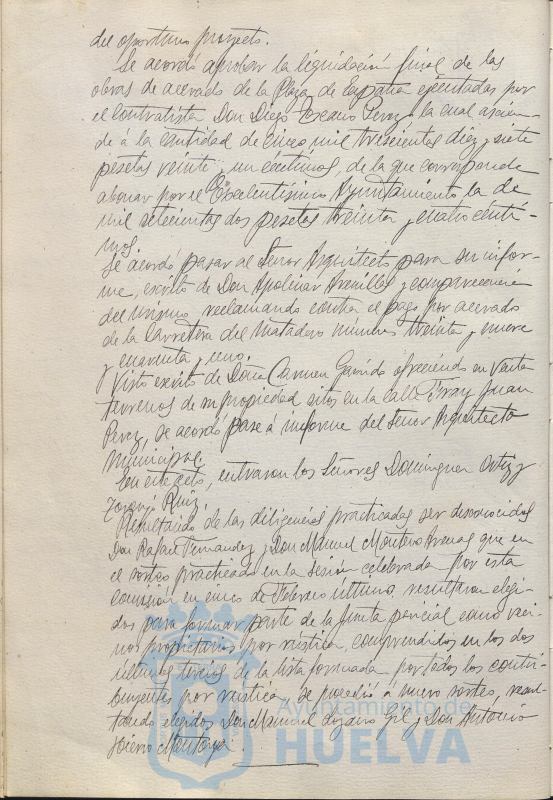 del oportuno proyecto.
Se acordó aprobar la liquidación final de las
obras de acerado de la Plaza de España ejecutadas por
el contratista Don Diego Pérez la cual ascien-
de á la cantidad de cinco mil trescientas diez y siete
pesetas veinte y un céntimos, de la que corresponde
abonar por el Excelentísimo Ayuntamiento la de
mil setecientas dos pesetas treinta y cuatro cénti-
mos.
Se acordó pasar al Señor Arquitecto para su infor-
me, escrito de Don Apolinar Arenillas y comparecencia
del mismo reclamando contra el pago por acerado
de la Carretera del Matadero números treinta y nueve
y cuarenta y uno.
Visto escrito de Doña Carmen Garrido ofreciendo en venta
terrenos de su propiedad sitos en la calle Fray Juan
Perez, se acordó pase á informe del Señor Arquitecto
Municipal.
En este acto, entraron los Señores Dominguez Ortiz y
Ruiz.
Resultando de las diligencias practicadas ser desconocidos
Don Rafael Fernandez y Don Manuel Montero Arenas que en
el sorteo practicado en la sesión celebrada por esta
comisión en cinco de Febrero último resultaron elegi-
dos para formar parte de la Junta pericial como veci-
nos propietarios por rústica, comprendidos en los dos
últimos tercios de la lista formada por todos los contri-
buyentes por rústica, se procedió á nuevo sorteo, resul-
tando elegidos Don Manuel Lozano Gil y Don Antonio
Montoya.
Ayuntamiento de
HUELVA